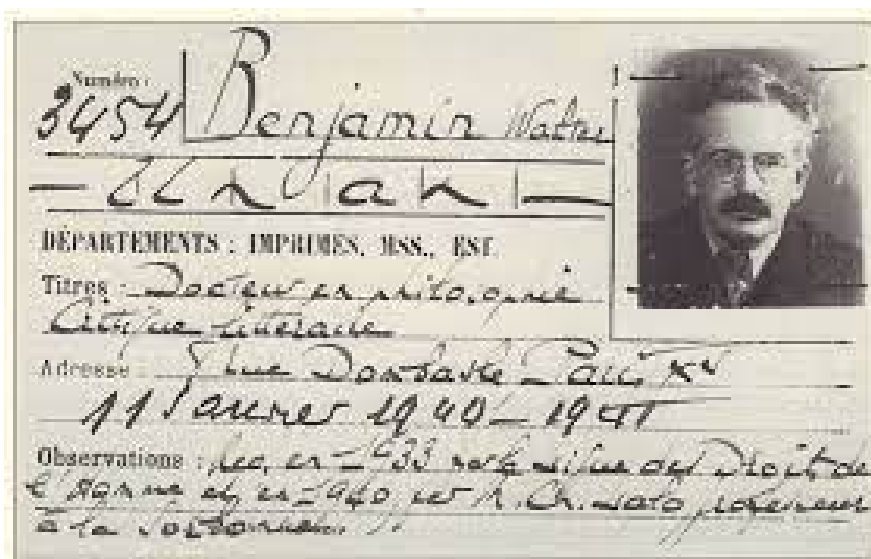 Numéro :
3454 Benjamin Walter
un an
DÉPARTEMENTS : IMPRIMES, MSS., EST.
Titres : Docteur en philosophie
Critique littéraire
Adresse : rue Dombasle Paris XV
11 Janvier 1940 - 1941
Observations : en 1933 des Droits de
l' et en 1940 par professeur
à la Sorbonne